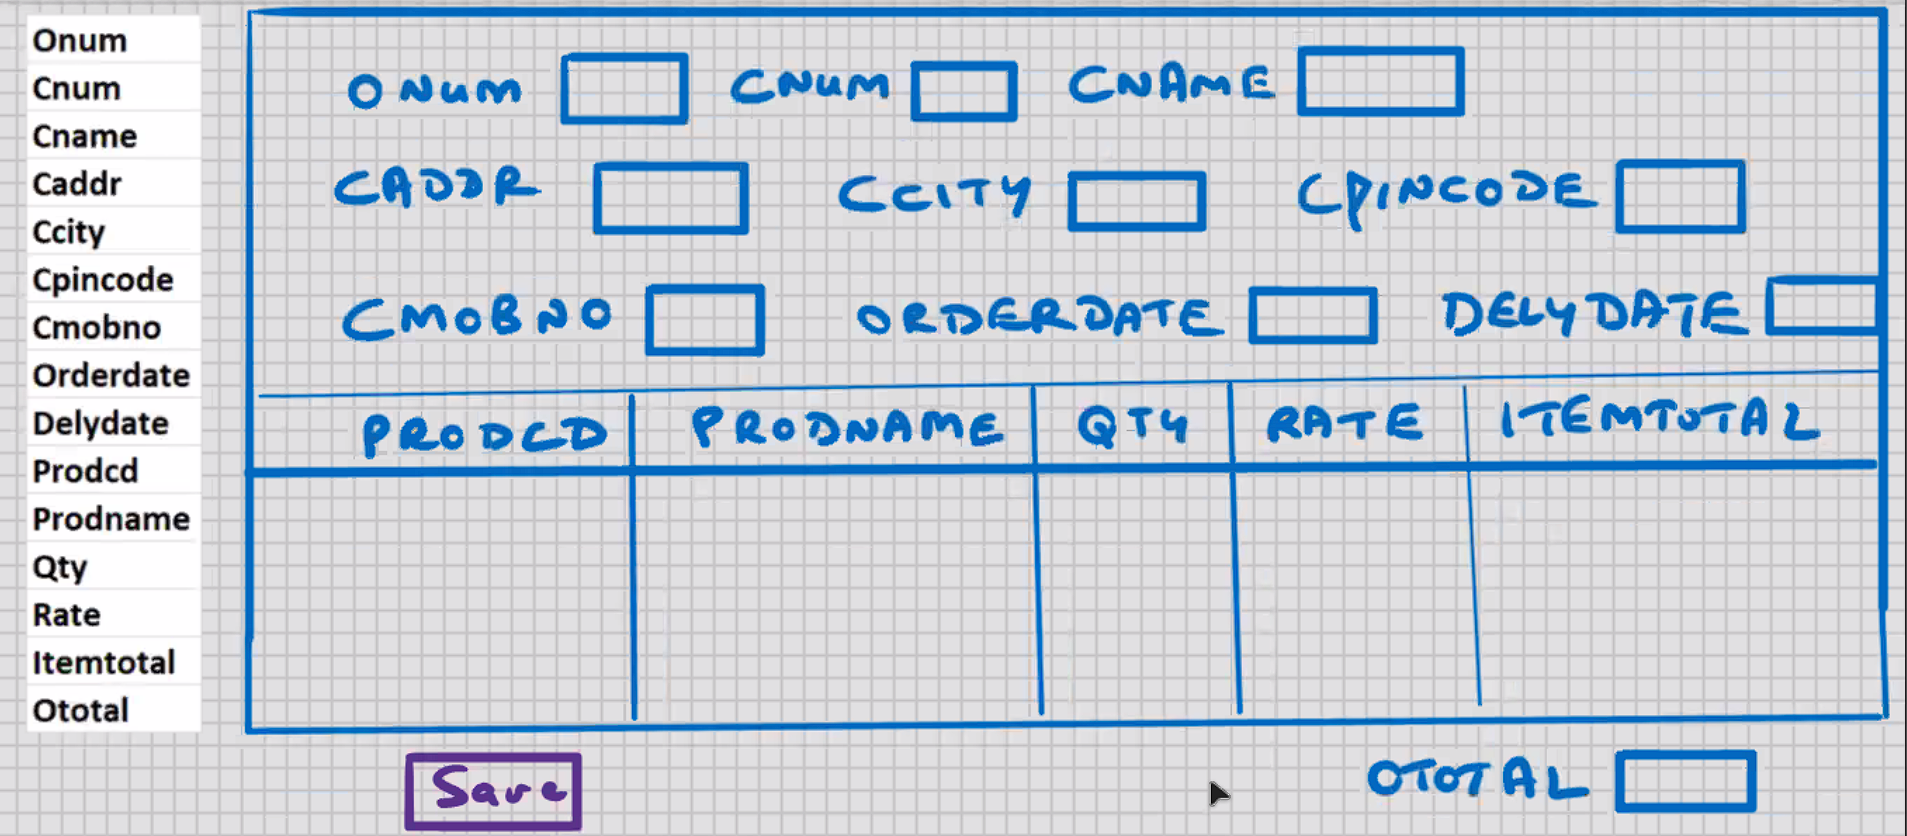 Onum
Cnum
Cname
Caddr
Ccity
Cpincode
Cmobno
Orderdate
Delydate
Prodcd
Prodname
Qty
Rate
Itemtotal
Ototal
ONUM CNUM CNAME
CADDR CCITY CPINCODE
CMOBNO ORDERDATE DELYDATE
PRODCD PRODNAME QTY RATE ITEMTOTAL
Save OTOTAL